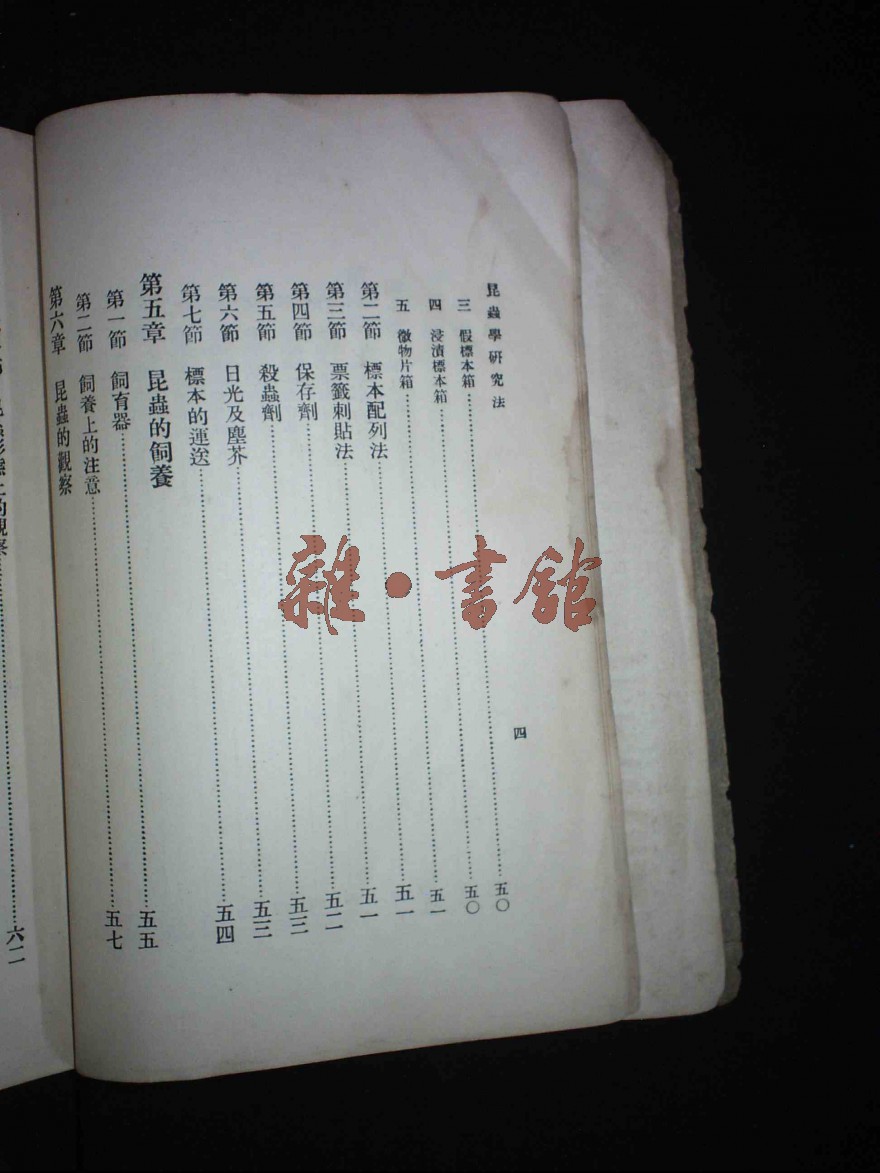 昆蟲學研究法
四
三 假標本箱……五〇
四 浸漬標本箱……五〇
五 微物片箱……五一
第二節 標本配列法……五一
第三節 票籤刺貼法……五一
第四節 保存劑……五二
第五節 殺蟲劑……五三
第六節 日光及塵芥……五三
第七節 標本的運送……五四
第五章 昆蟲的飼養
第一節 飼育器……五五
第二節 飼養上的注意……五七
第六章 昆蟲的觀察
上的觀察……六二
雜·書館